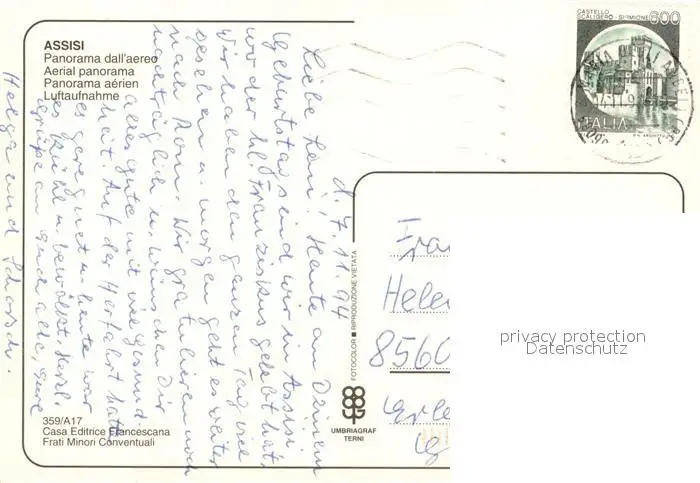 ASSISI
Panorama dall'aereo
Aerial panorama
Panorama aérien
Luftaufnahme
CASTELLO
SCALIGERO - SIRMIONE
600
ITALIA
d. 7.11.94
Liebe Leni! Heute an Deinem
Geburtstag sind wir in Assisi
wo der hl. Franziskus gelebt hat.
Wir haben den ganzen Tag viel
gesehen u. morgen geht es weiter
nach Rom. Wir gratulieren noch
nachträglich u. wünschen Dir
alles gute mit viel Gesund-
heit. Auf der Herfahrt hatte
es geregnet u. heute war
es kühl u. bewölkt. Herzl.
Grüße an Euch alle, Eure
Helga und Schorsch.
FOTOCOLOR ■ RIPRODUZIONE VIETATA
UMBRIAGRAF
TERNI
359/A17
Casa Editrice Francescana
Frati Minori Conventuali
Frau
Hele
8560
privacy protection
Datenschutz